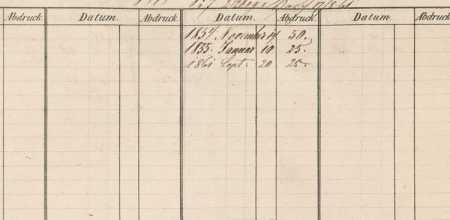 Abdruck. Datum. Abdruck. Datum. Abdruck. Datum. Abdruck.
1854 November 14 50.
1855. Januar 10 25.
1861 Sept. 20 25.